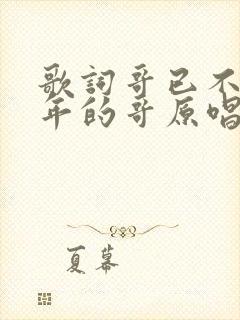 歌詞哥已不
年的哥原唱
夏幕